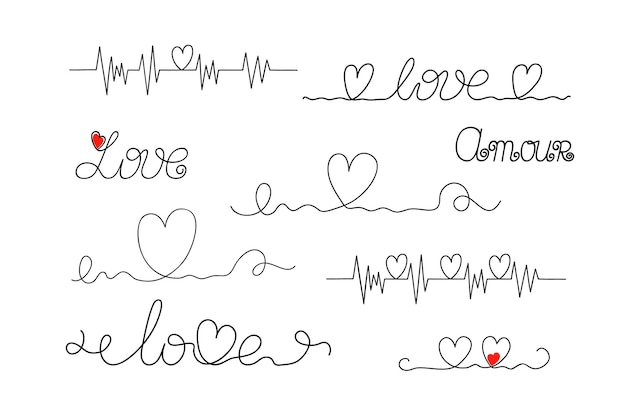 love
Love
Amour
love